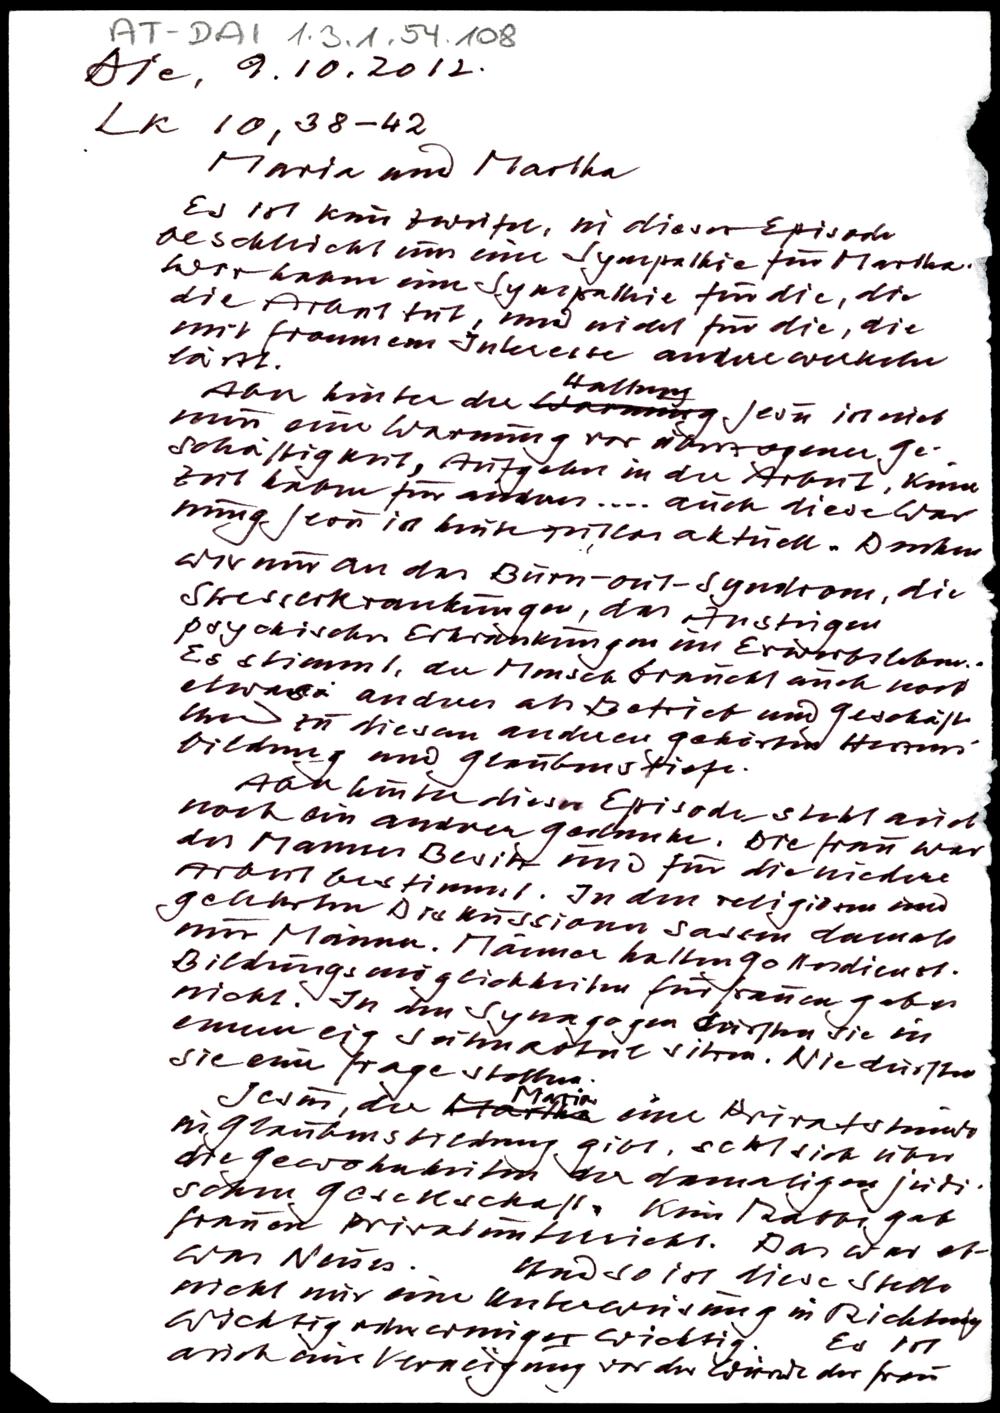 AT-DAI 1.3.1.54.108
Die, 9.10.2012.
Lk 10,38-42
Maria und Martha
Es ist kein Zweifel, in dieser Episode
beschleicht uns eine Sympathie für Martha.
Wir haben eine Sympathie für die, die
die Arbeit tut, und nicht für die, die
mit frommem Interesse andere werkeln
lässt.
Aber hinter der Haltung Jesu ist nicht
nur eine Warnung vor überzogener Ge-
schäftigkeit, Aufgehn in der Arbeit, keine
Zeit haben für andres .... auch diese War
nung Jesu ist heute aktuell. Denken
wir nur an das Burn-out-Syndrom, die
Stresserkrankungen, das Ansteigen
psychischer Erkrankungen im Erwerbsleben..
Es stimmt, der Mensch braucht auch noch
etwas andres als Betrieb und Geschäft
Und zu diesem anderen gehörten Herzens
bildung und Glaubenstiefe.
Aber hinter dieser Episode steht auch
noch ein andrer Gedanke. Die Frau war
des Mannes Besitz und für die niedere
Arbeit bestimmt. In den religiösen und
gelehrten Diskussionen sassen damals
nur Männer. Männer halten Gottesdienst.
Bildungsmöglichkeiten für Frauen gab es
nicht. In den Synagogen durften sie in
einem eig Seitenabteil sitzen. Nie durften
sie eine Frage stellen.
Jesus, der Maria eine Privatstunde
in Glaubensbildung gibt, setzt sich über
die Gewohnheiten der damaligen jüdi-
schen Gesellschaft. Kein Rabbi gab
Frauen Privatunterricht. Das war et-
was Neues. Und so ist diese Stelle
nicht nur eine Unterweisung in Richtung
wichtig oder weniger wichtig. Es ist
auch eine Verneigung vor der Würde der Frau